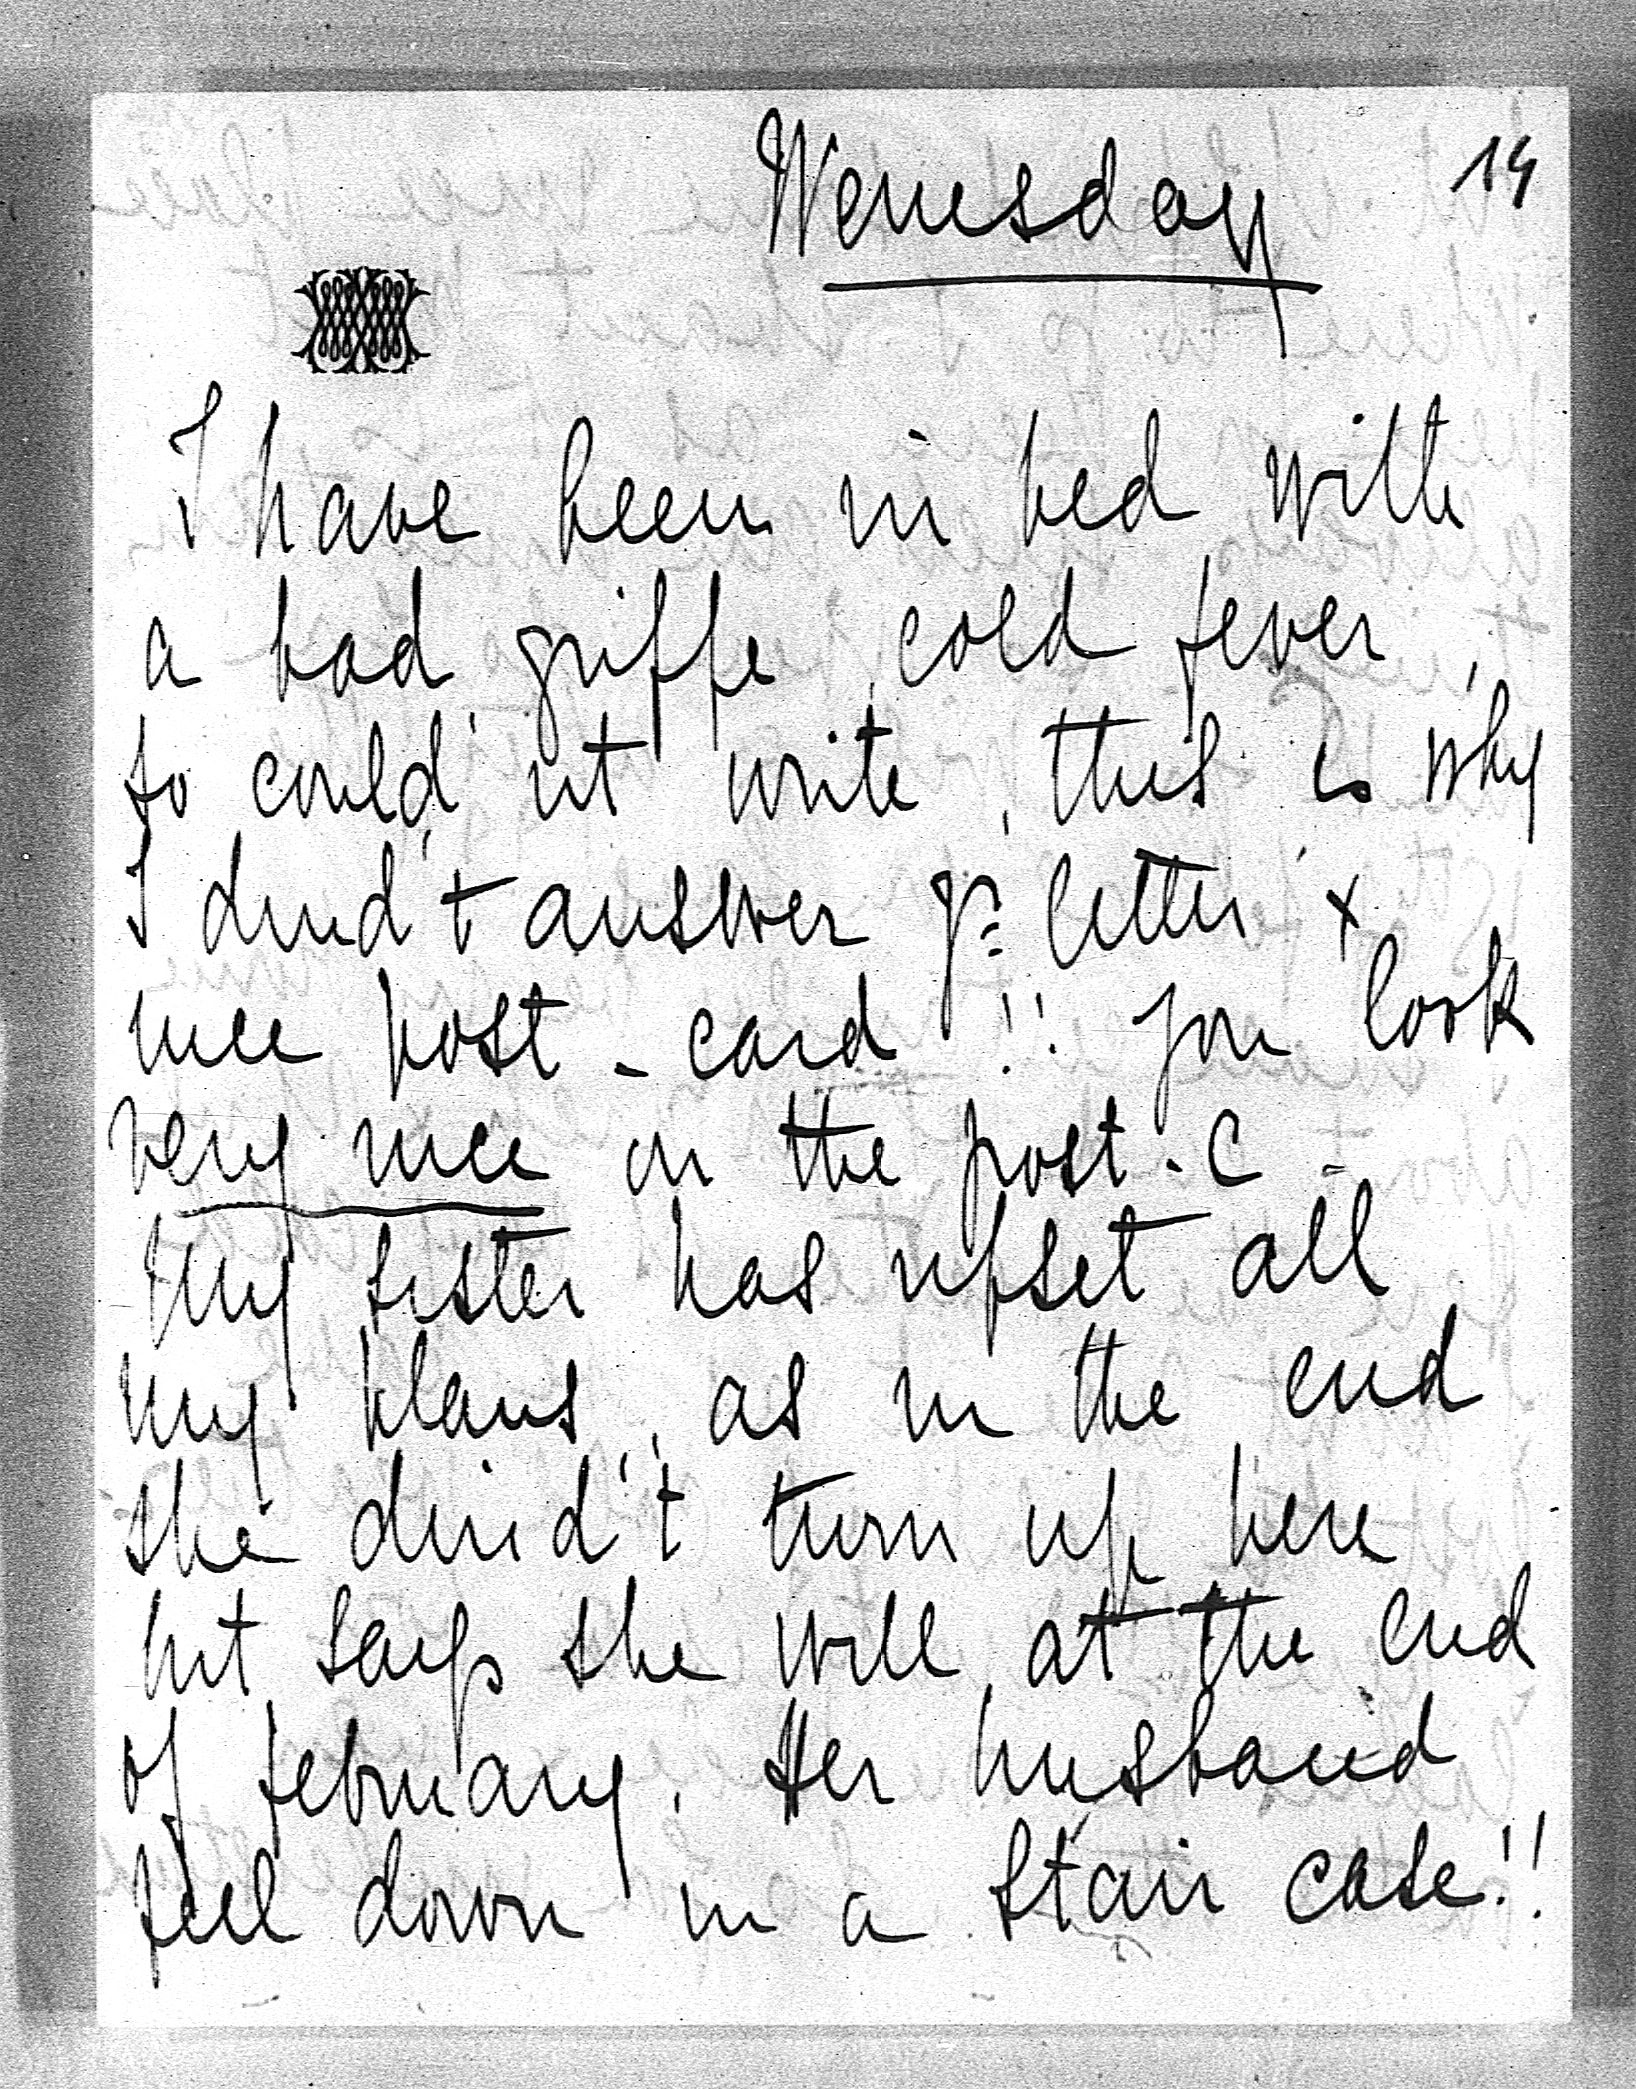 Wenesday 14
I have been in bed with
a bad griffe, cold fever,
so could'nt write, this is why
I dind't answer yr letter +
nice post-card!! you look
very nice on the post-C-
My sister has upset all
my plans, as in the end
she dind't turn up here
but says she will, at the end
of february. Her husband
feel down in a stair case!!